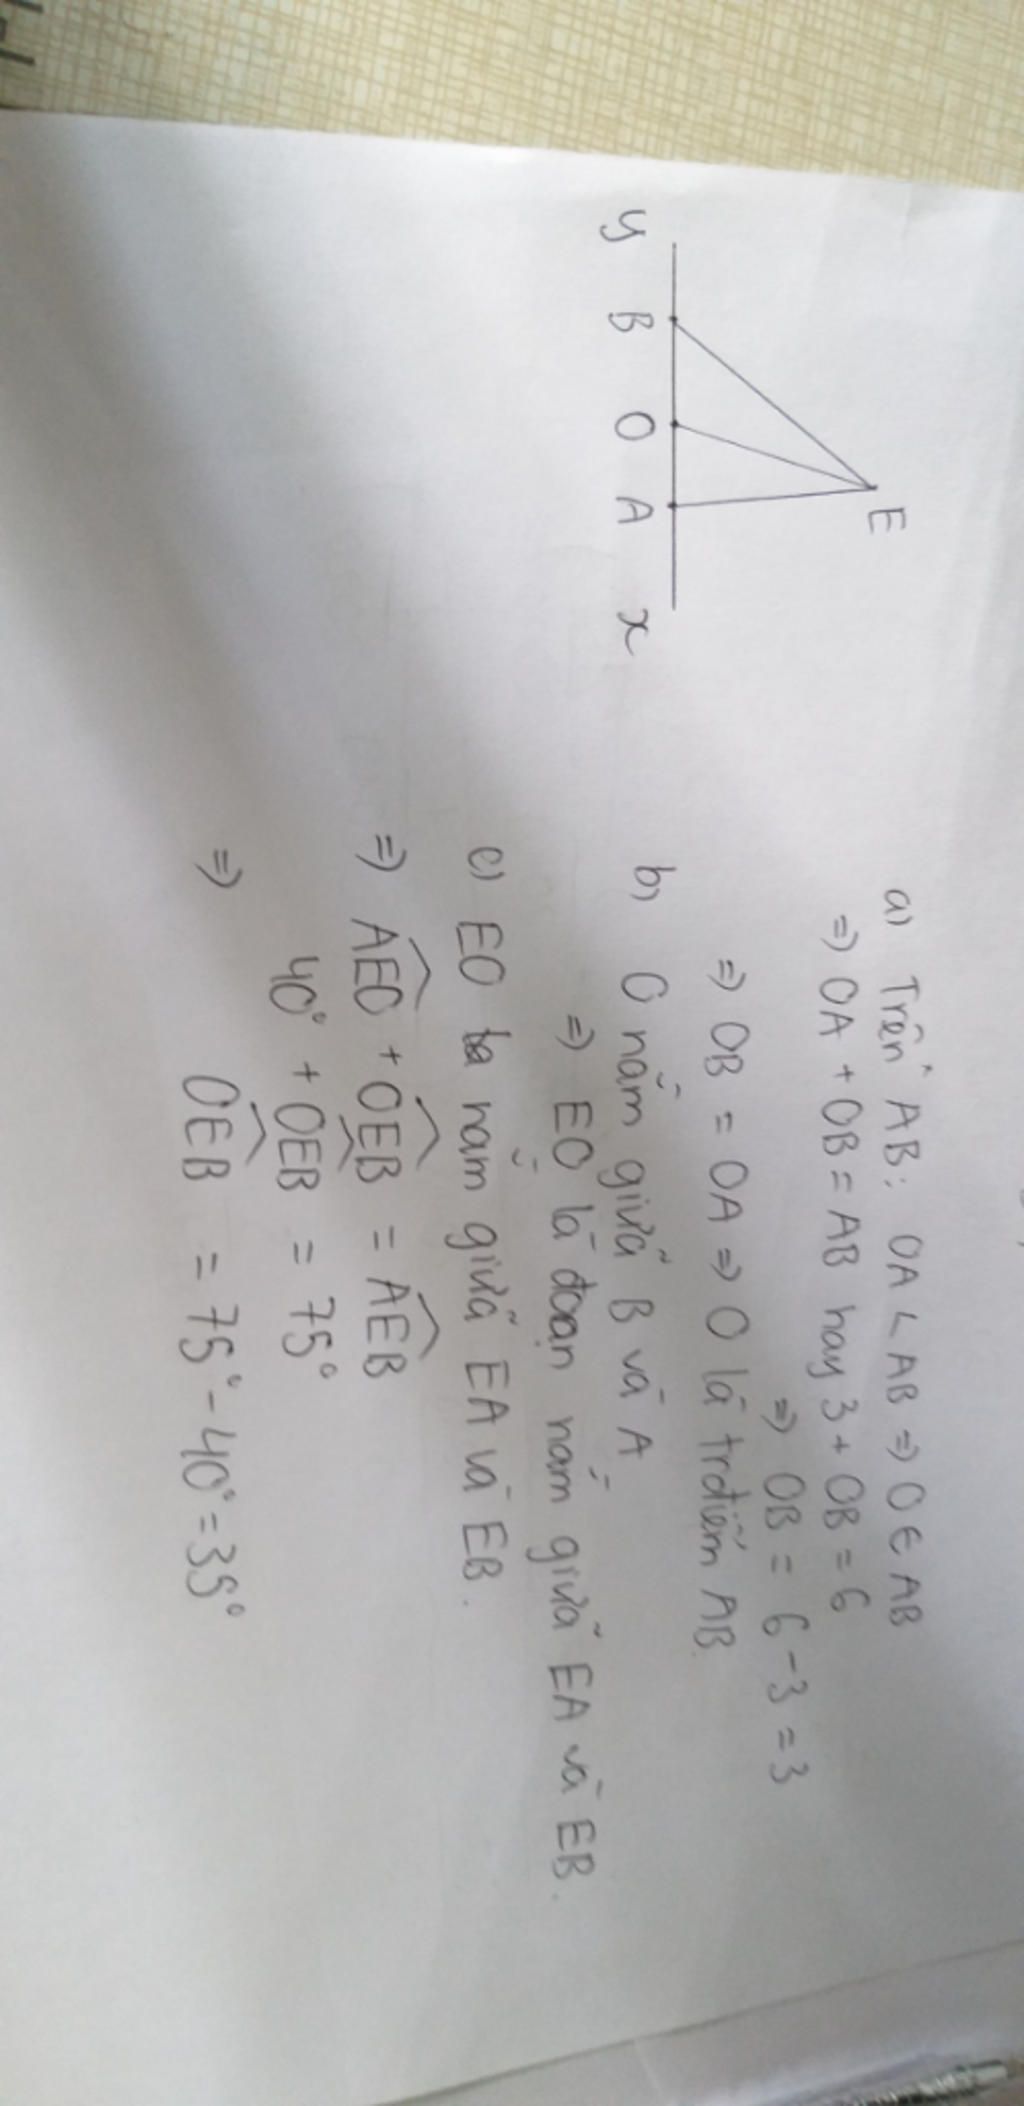 E
y B O A x
a) Trên AB: OA < AB => O ∈ AB
=> OA + OB = AB hay 3 + OB = 6
=> OB = 6 - 3 = 3
=> OB = OA => O là trđiểm AB.
b) O nằm giữa B và A
=> EO là đoạn nằm giữa EA và EB.
c) EO nằm giữa EA và EB.
=> \widehat{AEO} + \widehat{OEB} = \widehat{AEB}
40° + \widehat{OEB} = 75°
=> \widehat{OEB} = 75° - 40° = 35°